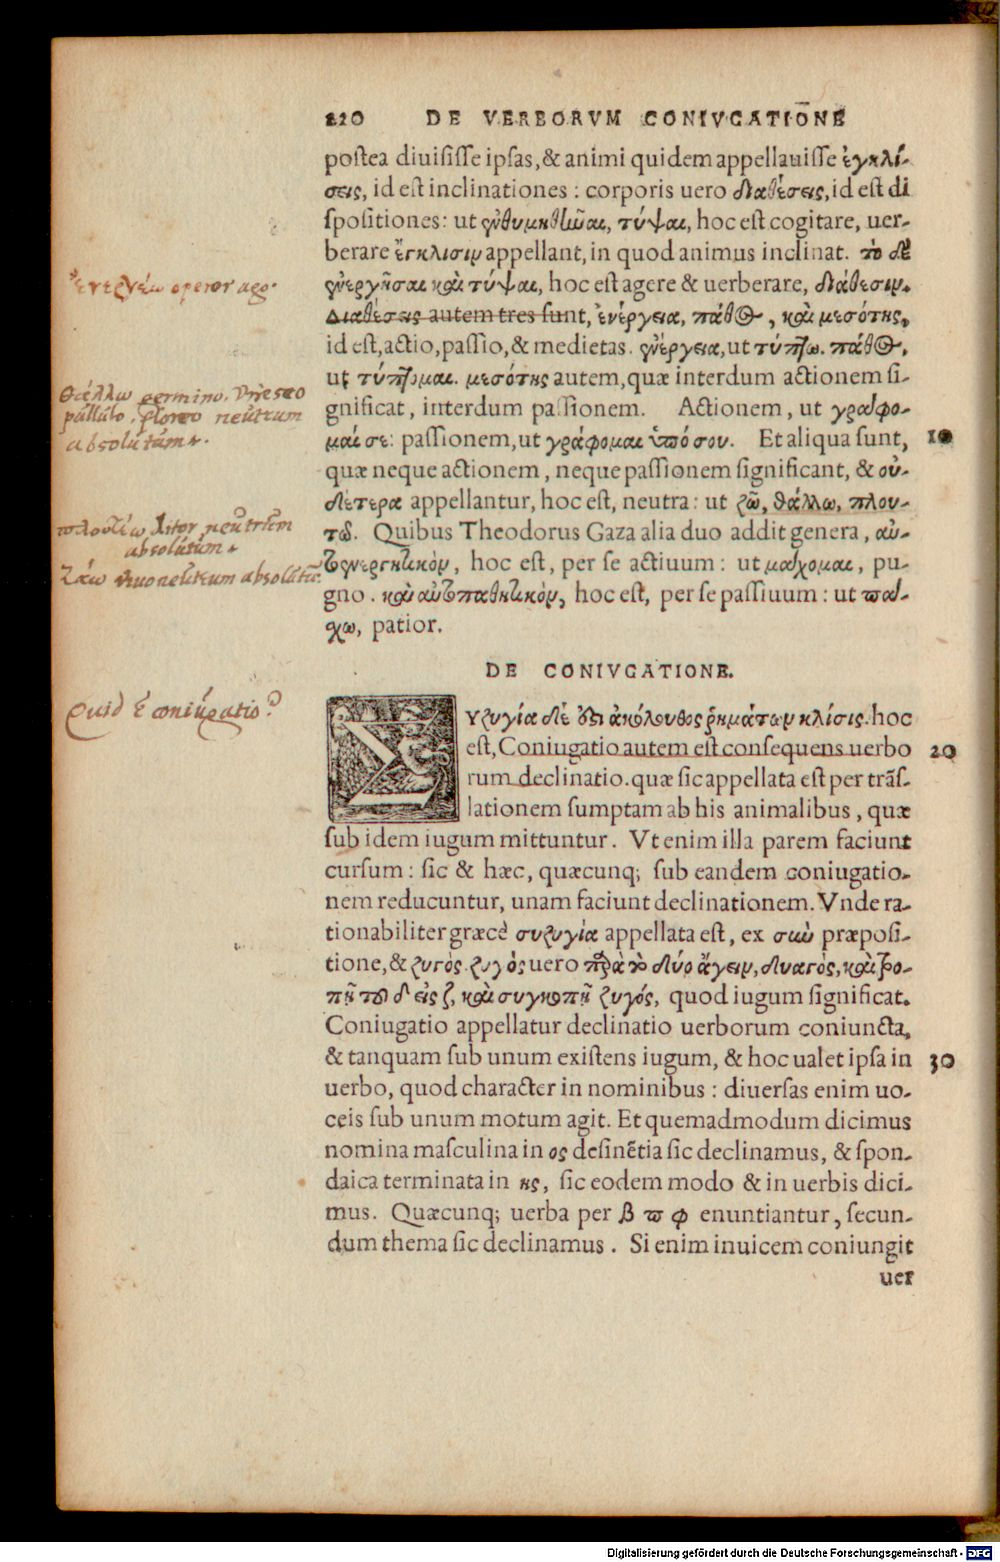 220 DE VERBORVM CONIVGATIONE
postea diuisisse ipsas, & animi quidem appellauisse ἐγκλί-
σεις, id est inclinationes : corporis uero διαθέσεις, id est di
spositiones: ut ἐνθυμηθῆναι, τύψαι, hoc est cogitare, uer-
berare ἔγκλισιν appellant, in quod animus inclinat. τὸ δὲ
ἐνεργῆσαι καὶ τύψαι, hoc est agere & uerberare, διάθεσιν.
Διαθέσεις autem tres sunt, ἐνέργεια, πάθος, καὶ μεσότης,
id est, actio, passio, & medietas. ἐνέργεια, ut τύπτω. πάθος,
ut τύπτομαι. μεσότης autem, quæ interdum actionem si-
gnificat, interdum passionem. Actionem, ut γράφο-
μαί σε: passionem, ut γράφομαι ὑπό σου. Et aliqua sunt, 10
quæ neque actionem, neque passionem significant, & οὐ-
δέτερα appellantur, hoc est, neutra: ut ζῶ, θάλλω, πλου-
τῶ. Quibus Theodorus Gaza alia duo addit genera, αὐ-
τοενεργητικὸν, hoc est, per se actiuum: ut μάχομαι, pu-
gno. καὶ αὐτοπαθητικὸν, hoc est, per se passiuum: ut πάσ-
χω, patior.
DE CONIVGATIONE.
ΣΥζυγία δέ ἐστι ἀκόλουθος ῥημάτων κλίσις. hoc
est, Coniugatio autem est consequens uerbo 20
rum declinatio. quæ sic appellata est per trãs-
lationem sumptam ab his animalibus, quæ
sub idem iugum mittuntur. Vt enim illa parem faciunt
cursum: sic & hæc, quæcunq; sub eandem coniugatio-
nem reducuntur, unam faciunt declinationem. Vnde ra-
tionabiliter græcè συζυγία appellata est, ex σὺν præposi-
tione, & ζυγός. ζυγὸς uero παρὰ τὸ δύο ἄγειν, δυαγός, καὶ τρο-
πῇ τοῦ δ εἰς ζ, καὶ συγκοπῇ ζυγός, quod iugum significat.
Coniugatio appellatur declinatio uerborum coniuncta,
& tanquam sub unum existens iugum, & hoc ualet ipsa in 30
uerbo, quod character in nominibus: diuersas enim uo-
ceis sub unum motum agit. Et quemadmodum dicimus
nomina masculina in ος desinẽtia sic declinamus, & spon-
daica terminata in ης, sic eodem modo & in uerbis dici-
mus. Quæcunq; uerba per β π φ enuntiantur, secun-
dum thema sic declinamus. Si enim inuicem coniungit
uer
ἐνεργέω operor ago.
θάλλω germino. viresco
pullulo. floreo neutrum
absolutum.
πλουτέω ditor neutrum
absolutum.
ζάω vivo neutrum absolutũ.
Quid ẽ coniugatio?
Digitalisierung gefördert durch die Deutsche Forschungsgemeinschaft - DFG